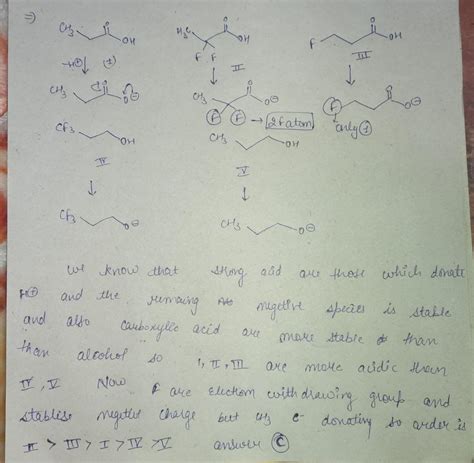 ⇒)
CH₃ O OH
H₃C F F O OH
F O OH
-H⊕ (1) II III
CH₃ O O⊖
CH₃ F F O O⊖ → 2F atom
F O O⊖ only 1
CF₃ OH
IV
CH₃ OH
V
CF₃ O⊖
CH₃ O⊖
We know that strong acid are those which donate
H⊕ and the remaing negitive species is stable
and also carboxylic acid are more stable than
than alcohol so I, II, III are more acidic then
IV, V Now F are Electron withdrawing group and
stables negitive charge but CH₃ e⁻ donating so order is
II > III > I > IV > V answer C